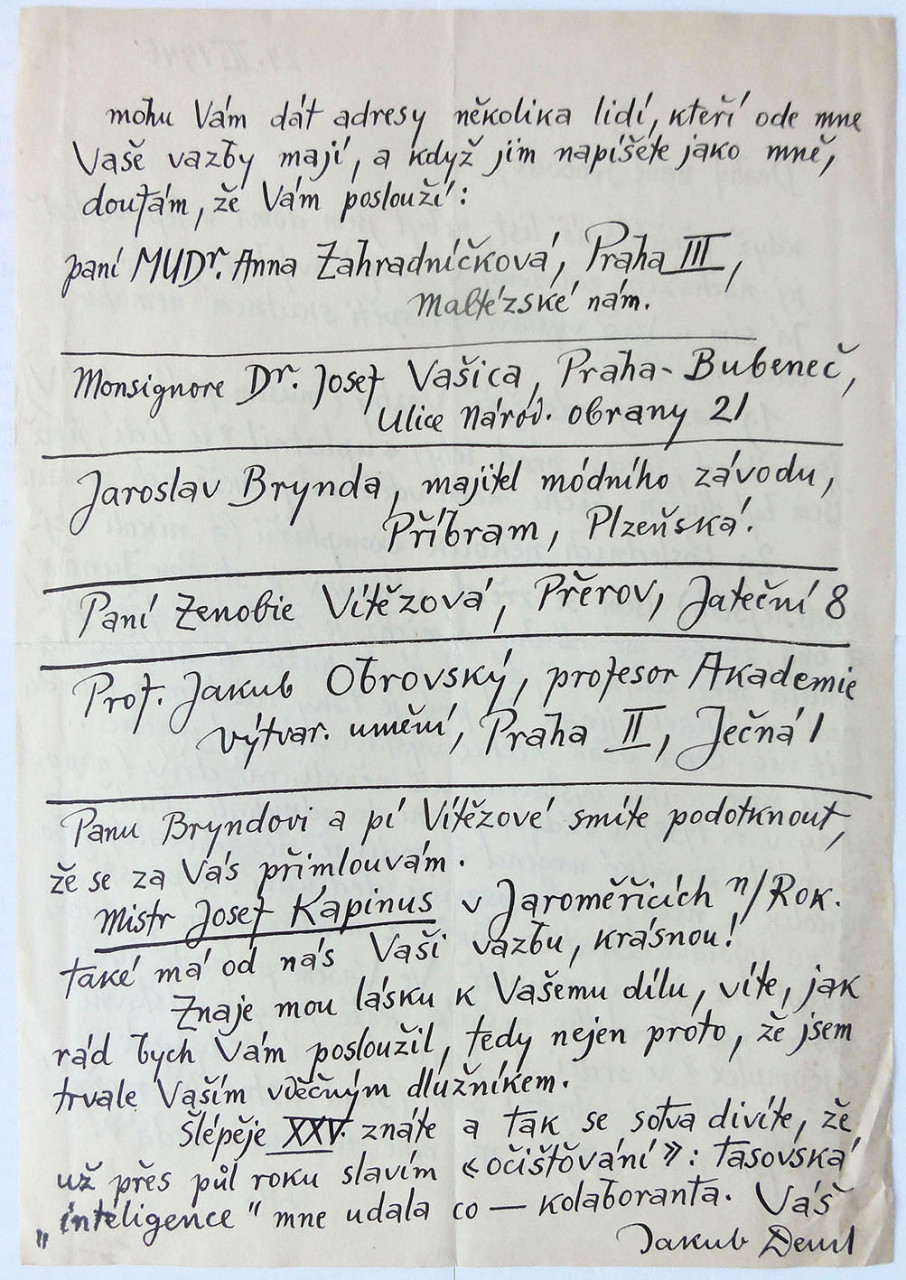 mohu Vám dát adresy několika lidí, kteří ode mne
Vaše vazby mají, a když jim napíšete jako mně,
doufám, že Vám poslouží:
paní MUDr. Anna Zahradníčková, Praha III,
Maltézské nám.
Monsignore Dr. Josef Vašica, Praha-Bubeneč,
Ulice Národ. obrany 21
Jaroslav Brynda, majitel módního závodu,
Příbram, Plzeňská.
Paní Zenobie Vítězová, Přerov, Jateční 8
Prof. Jakub Obrovský, profesor Akademie
výtvar. umění, Praha II, Ječná 1
Panu Bryndovi a pí Vítězové smíte podotknout,
že se za Vás přimlouvám.
Mistr Josef Kapinus v Jaroměřicích n/Rok.
také má od nás Vaši vazbu, krásnou!
Znaje mou lásku k Vašemu dílu, víte, jak
rád bych Vám posloužil, tedy nejen proto, že jsem
trvale Vaším vděčným dlužníkem.
Šlépěje XXV. znáte a tak se sotva divíte, že
už přes půl roku slavím «očišťování»: tasovská
„inteligence" mne udala co — kolaboranta. Váš
Jakub Deml